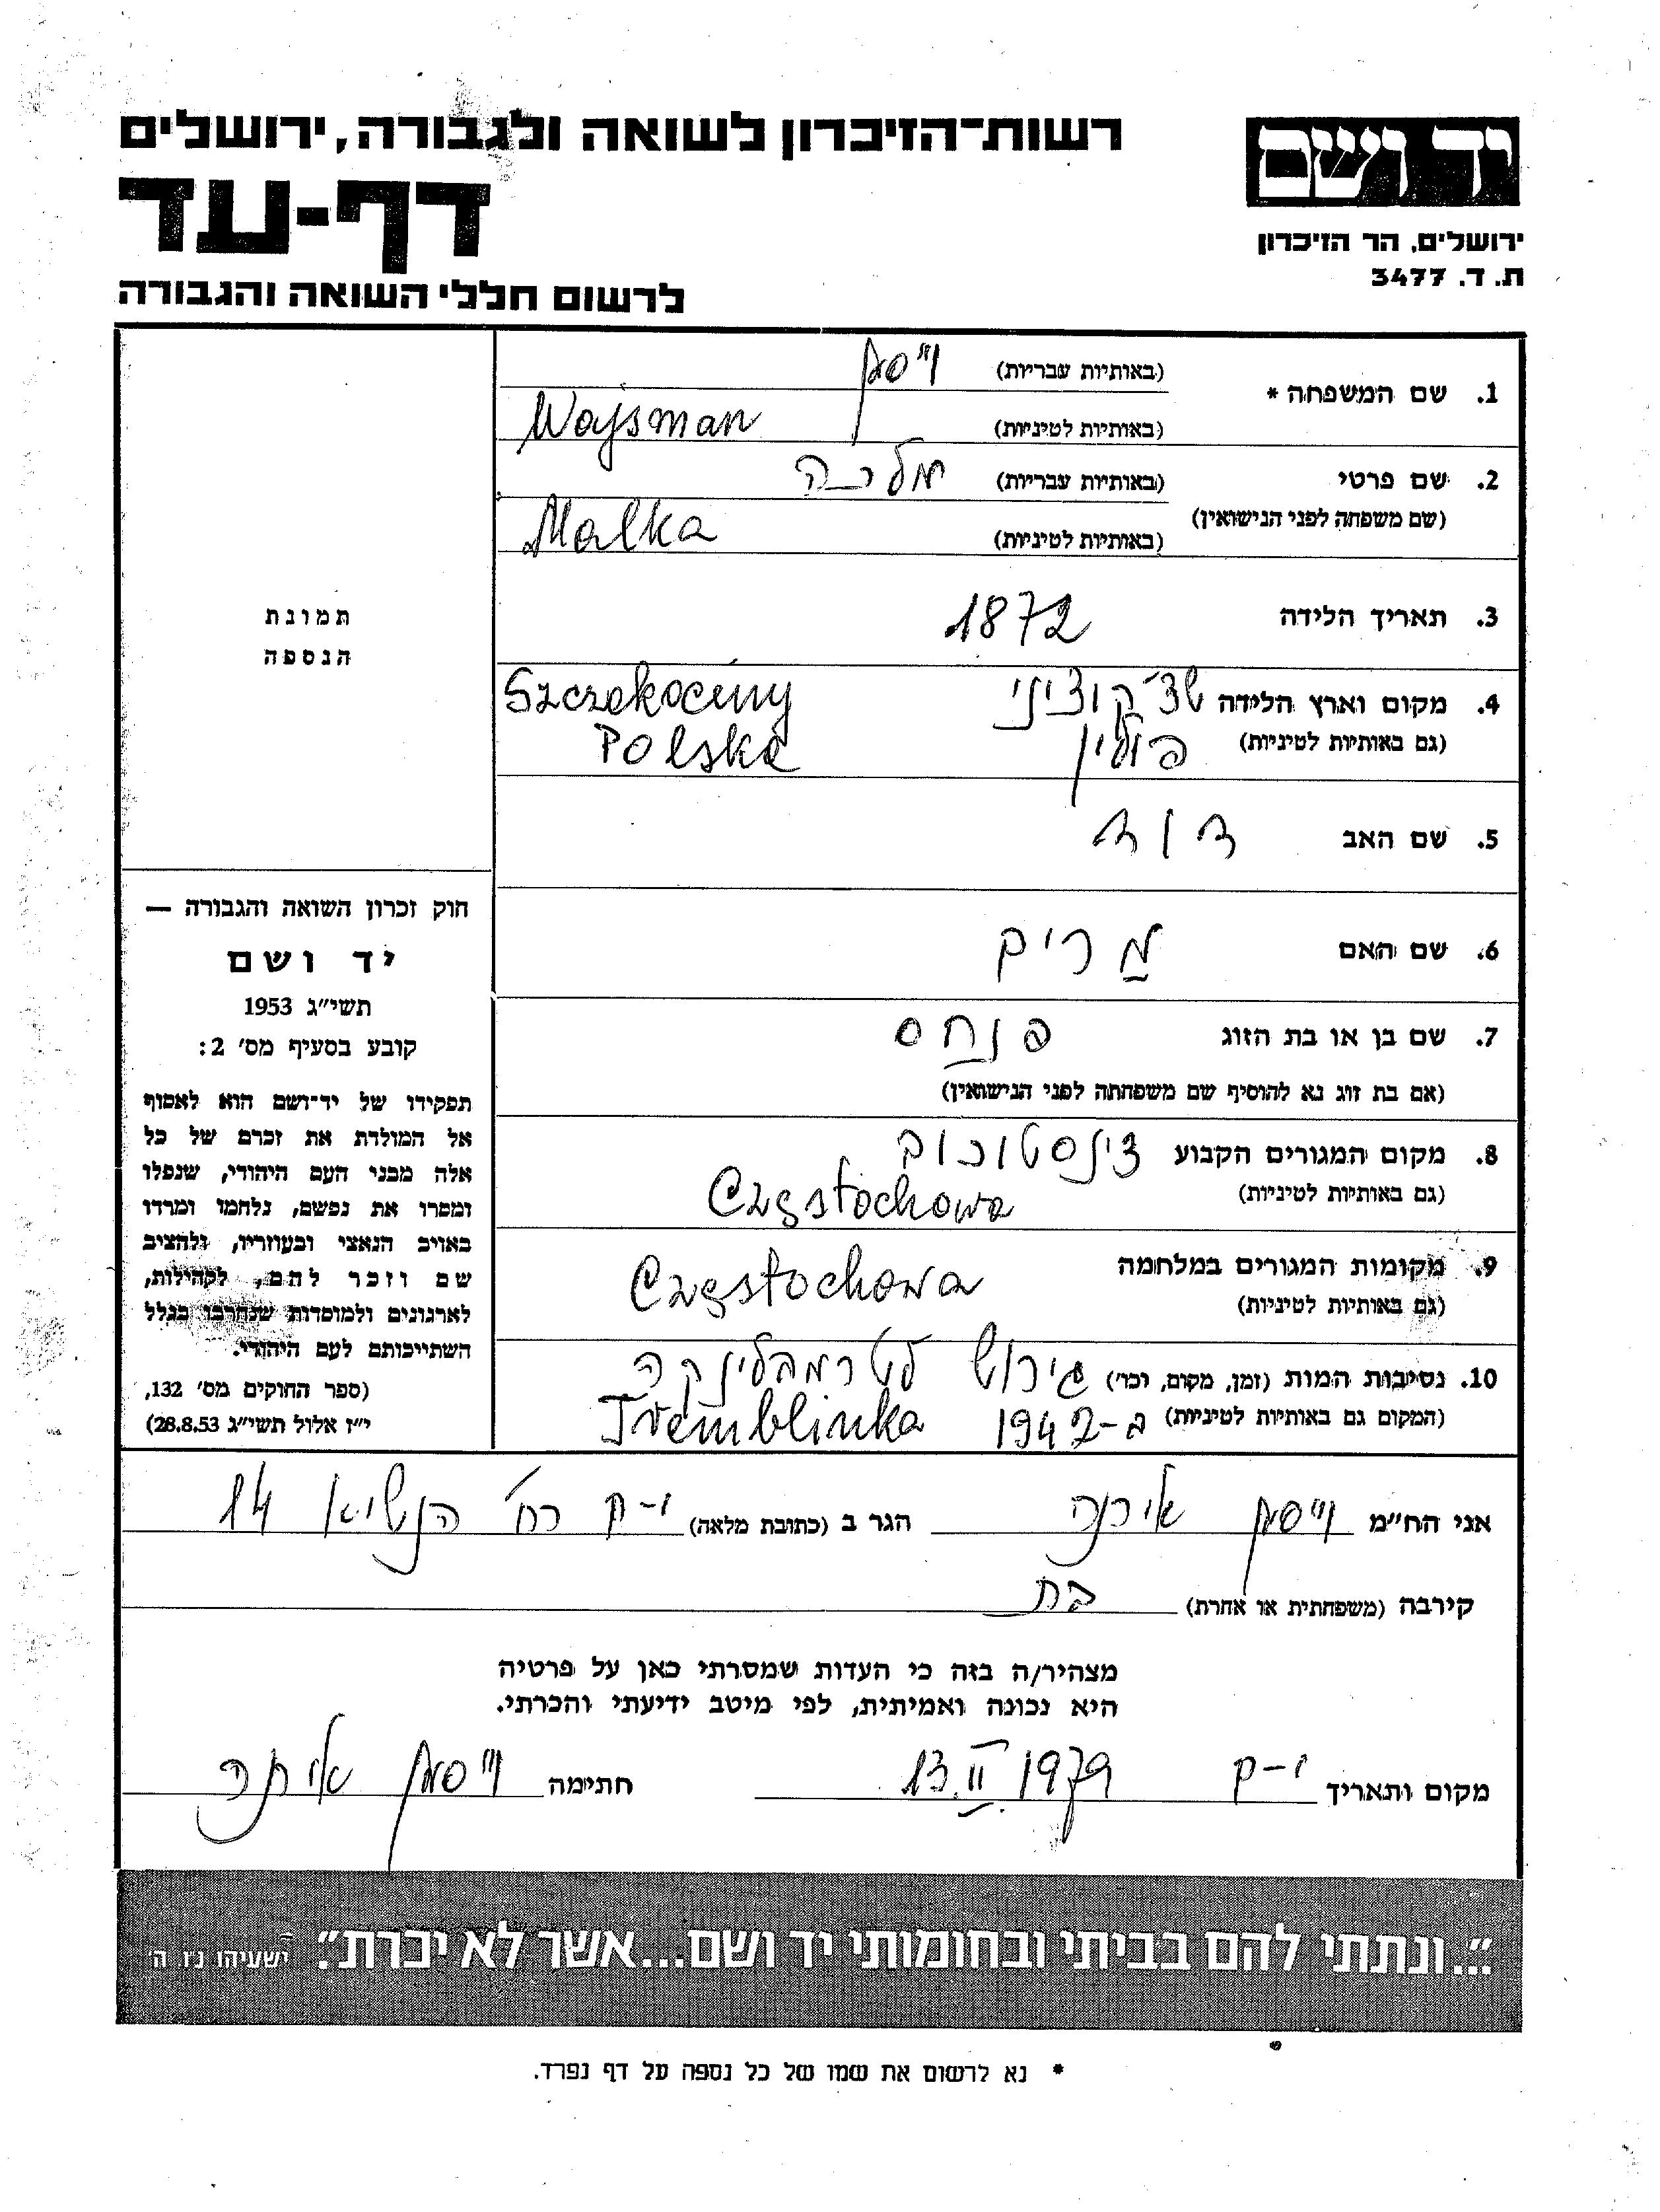 יד ושם
ירושלים, הר הזיכרון
ת. ד. 3477
רשות־הזיכרון לשואה ולגבורה, ירושלים
דף-עד
לרשום חללי השואה והגבורה
תמונת
הנספה
חוק זכרון השואה והגבורה —
יד ושם
תשי״ג 1953
קובע בסעיף מס׳ 2:
תפקידו של יד־ושם הוא לאסוף
אל המולדת את זכרם של כל
אלה מבני העם היהודי, שנפלו
ומסרו את נפשם, נלחמו ומרדו
באויב הנאצי ובעוזריו, ולהציב
שם וזכר להם, לקהילות,
לארגונים ולמוסדות שנחרבו בגלל
השתייכותם לעם היהודי.
(ספר החוקים מס׳ 132,
י״ז אלול תשי״ג 28.8.53)
1. שם המשפחה * (באותיות עבריות) ויסמן
(באותיות לטיניות) Wajsman
2. שם פרטי (באותיות עבריות) מלכה
(שם משפחה לפני הנישואין)
(באותיות לטיניות) Malka
3. תאריך הלידה 1872
4. מקום וארץ הלידה שצ׳קוציני Szczekociny
(גם באותיות לטיניות) פולין Polska
5. שם האב דוד
6. שם האם מרים
7. שם בן או בת הזוג פנחס
(אם בת זוג נא להוסיף שם משפחתה לפני הנישואין)
8. מקום המגורים הקבוע צ׳נסטוכוב
(גם באותיות לטיניות) Częstochowa
9. מקומות המגורים במלחמה Częstochowa
(גם באותיות לטיניות)
10. נסיבות המות (זמן, מקום, וכו׳) גירוש לטרמבלינקה
(המקום גם באותיות לטיניות) ב-1942 Tremblinka
אני הח״מ ויסמן הגר ב (כתובת מלאה) י-ם רח׳ הנשיא 14
קירבה (משפחתית או אחרת) בת
מצהיר/ה בזה כי העדות שמסרתי כאן על פרטיה
היא נכונה ואמיתית, לפי מיטב ידיעתי והכרתי.
מקום ותאריך י-ם 13.II 1979 חתימה ויסמן
״...ונתתי להם בביתי ובחומותי יד ושם...אשר לא יכרת״. ישעיהו נ״ו, ה׳
* נא לרשום את שמו של כל נספה על דף נפרד.